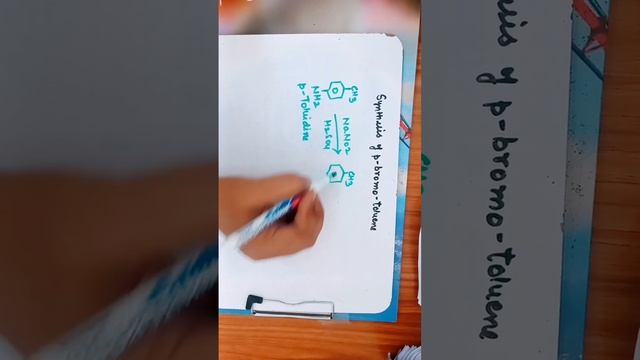 Synthesis of p-bromo-toluene
CH3
NH2
p-Toluidine
NaNO2
H2SO4
CH3
p-bromo-toluene